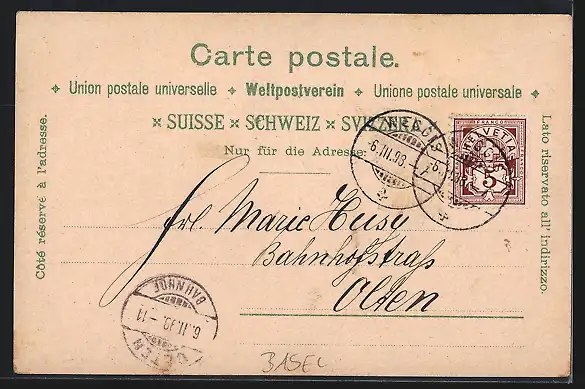 Carte postale.
✦ Union postale universelle ✦ Weltpostverein ✦ Unione postale universale ✦
× SUISSE × SCHWEIZ × SVIZZERA
Nur für die Adresse
Côté réservé à l'adresse.
Lato riservato all' indirizzo.
FRANCO
HELVETIA
5
WEGGIS
6.III.98.
Frl. Marie Husy
Bahnhofstraß
Olten
OLTEN
BAHNHOF
BASEL